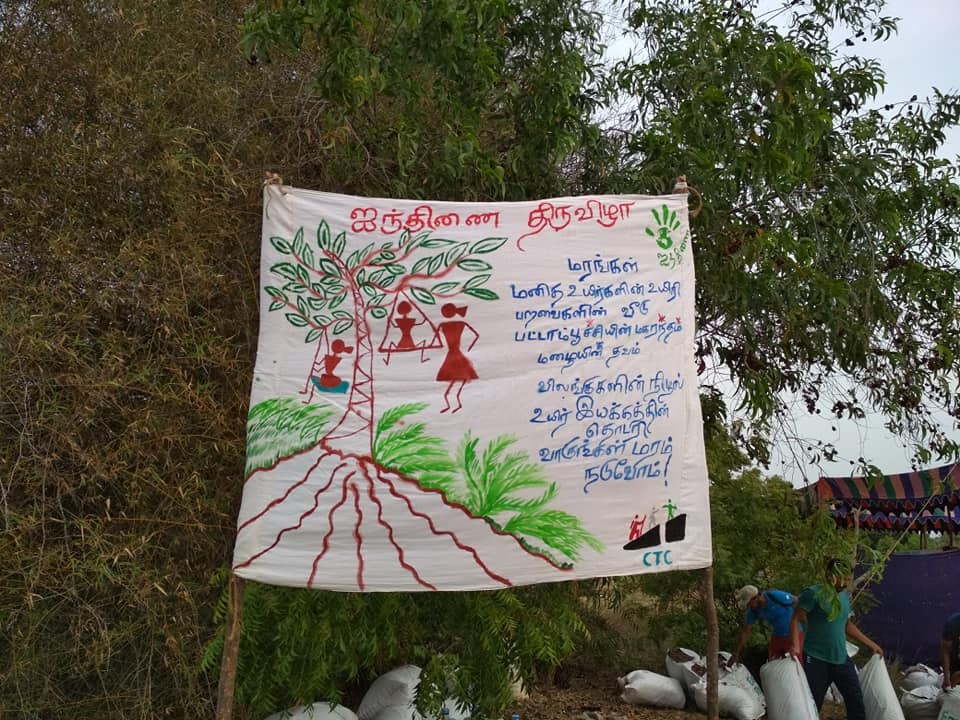 ஐந்திணை திருவிழா
ஐந்திணை
மரங்கள்
மனித உயிர்களின் உயிரி
பறவைகளின் வீடு
பட்டாம்பூச்சியின் மகரந்தம்
மழையின் தவம்
விலங்குகளின் நிழல்
உயிர் இயக்கத்தின்
தொடரி
வாருங்கள் மரம்
நடுவோம்!
CTC